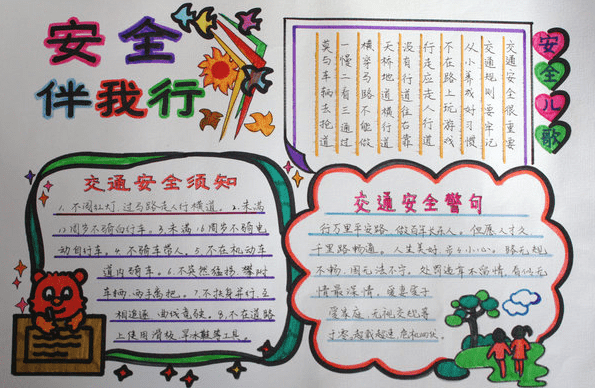 安全
伴我行
安全儿歌
交通安全很重要
交通规则要牢记
从小养成好习惯
不在路上玩游戏
行走应走人行道
没有行道往右靠
天桥地道横行道
横穿马路不能做
一慢二看三通过
莫与车辆去抢道
交通安全须知
1、不闯红灯,过马路走人行横道。2、未满
12周岁不骑自行车。3、未满16周岁不骑电
动自行车。4、不骑车带人。5、不在机动车
道内骑车。6、不突然猛拐、攀附
车辆、两手离把。7、不扶身并行、互
相追逐、曲线竞驶。8、不在道路
上使用滑板、旱冰鞋等工具。
交通安全警句
行万里平安路,做百年长在人。
千里路畅通。人生美好,步步小心。路无规
不畅,国无法不宁。处罚违章不留情,看似无
情最深情。爱妻爱子
爱家庭,无视交规等
于零。超载超速,危机四伏。